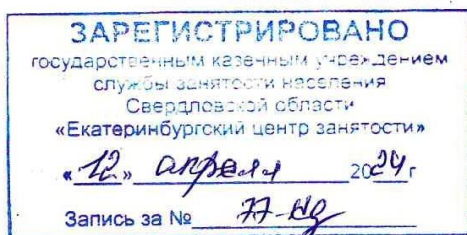 ЗАРЕГИСТРИРОВАНО
государственным казенным учреждением
службы занятости населения
Свердловской области
«Екатеринбургский центр занятости»
«12» апреля 2024 г
Запись за № 77-кд